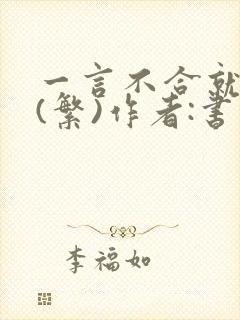 一言不合就
(繁)作者:書
李福如